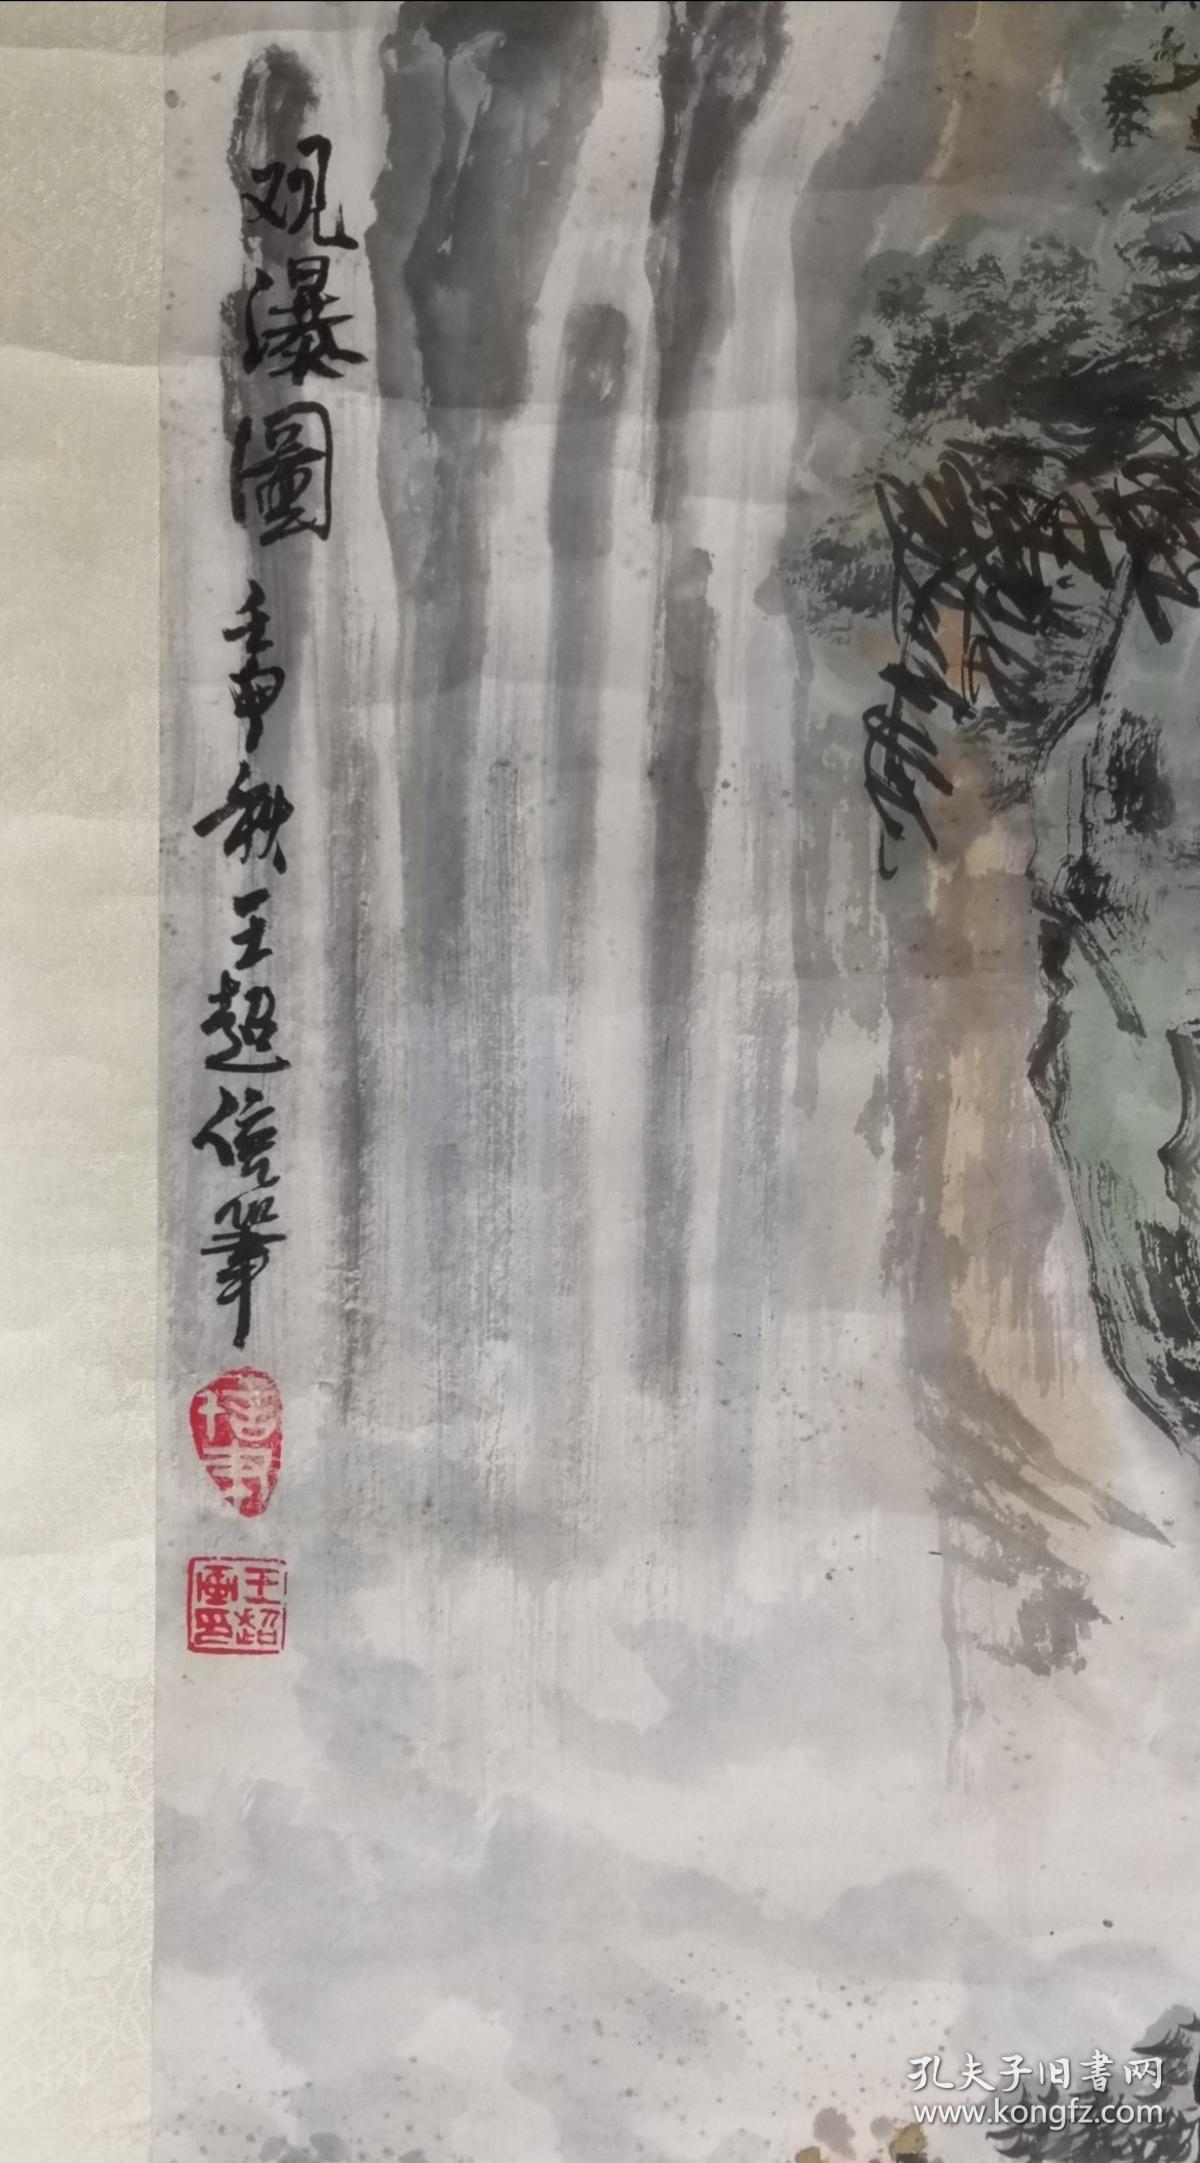 观瀑圖
壬申秋王超信筆
王超
畫印
孔夫子旧書网
www.kongfz.com